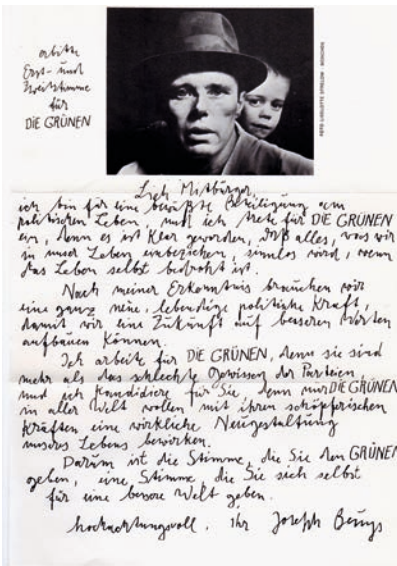 erbitte
Erst- und
Zweitstimme
für
DIE GRÜNEN
FOTO LISELOTTE STRELOW · MÜNCHEN
Liebe Mitbürger,
ich bin für eine bewußte Beteiligung am
politischen Leben, und ich trete für DIE GRÜNEN
ein, denn es ist klar geworden, daß alles, was wir
in unser Leben einbeziehen, sinnlos wird, wenn
das Leben selbst bedroht ist.
Nach meiner Erkenntnis brauchen wir
eine ganz neue, lebendige politische Kraft,
damit wir eine Zukunft auf besseren Werten
aufbauen können.
Ich arbeite für DIE GRÜNEN, denn sie sind
mehr als das schlechte Gewissen der Parteien
und ich kandidiere für Sie, denn nur DIE GRÜNEN
in aller Welt wollen mit ihren schöpferischen
Kräften eine wirkliche Neugestaltung
unseres Lebens bewirken.
Darum ist die Stimme, die Sie den GRÜNEN
geben, eine Stimme, die Sie sich selbst
für eine bessere Welt geben.
hochachtungsvoll, Ihr Joseph Beuys